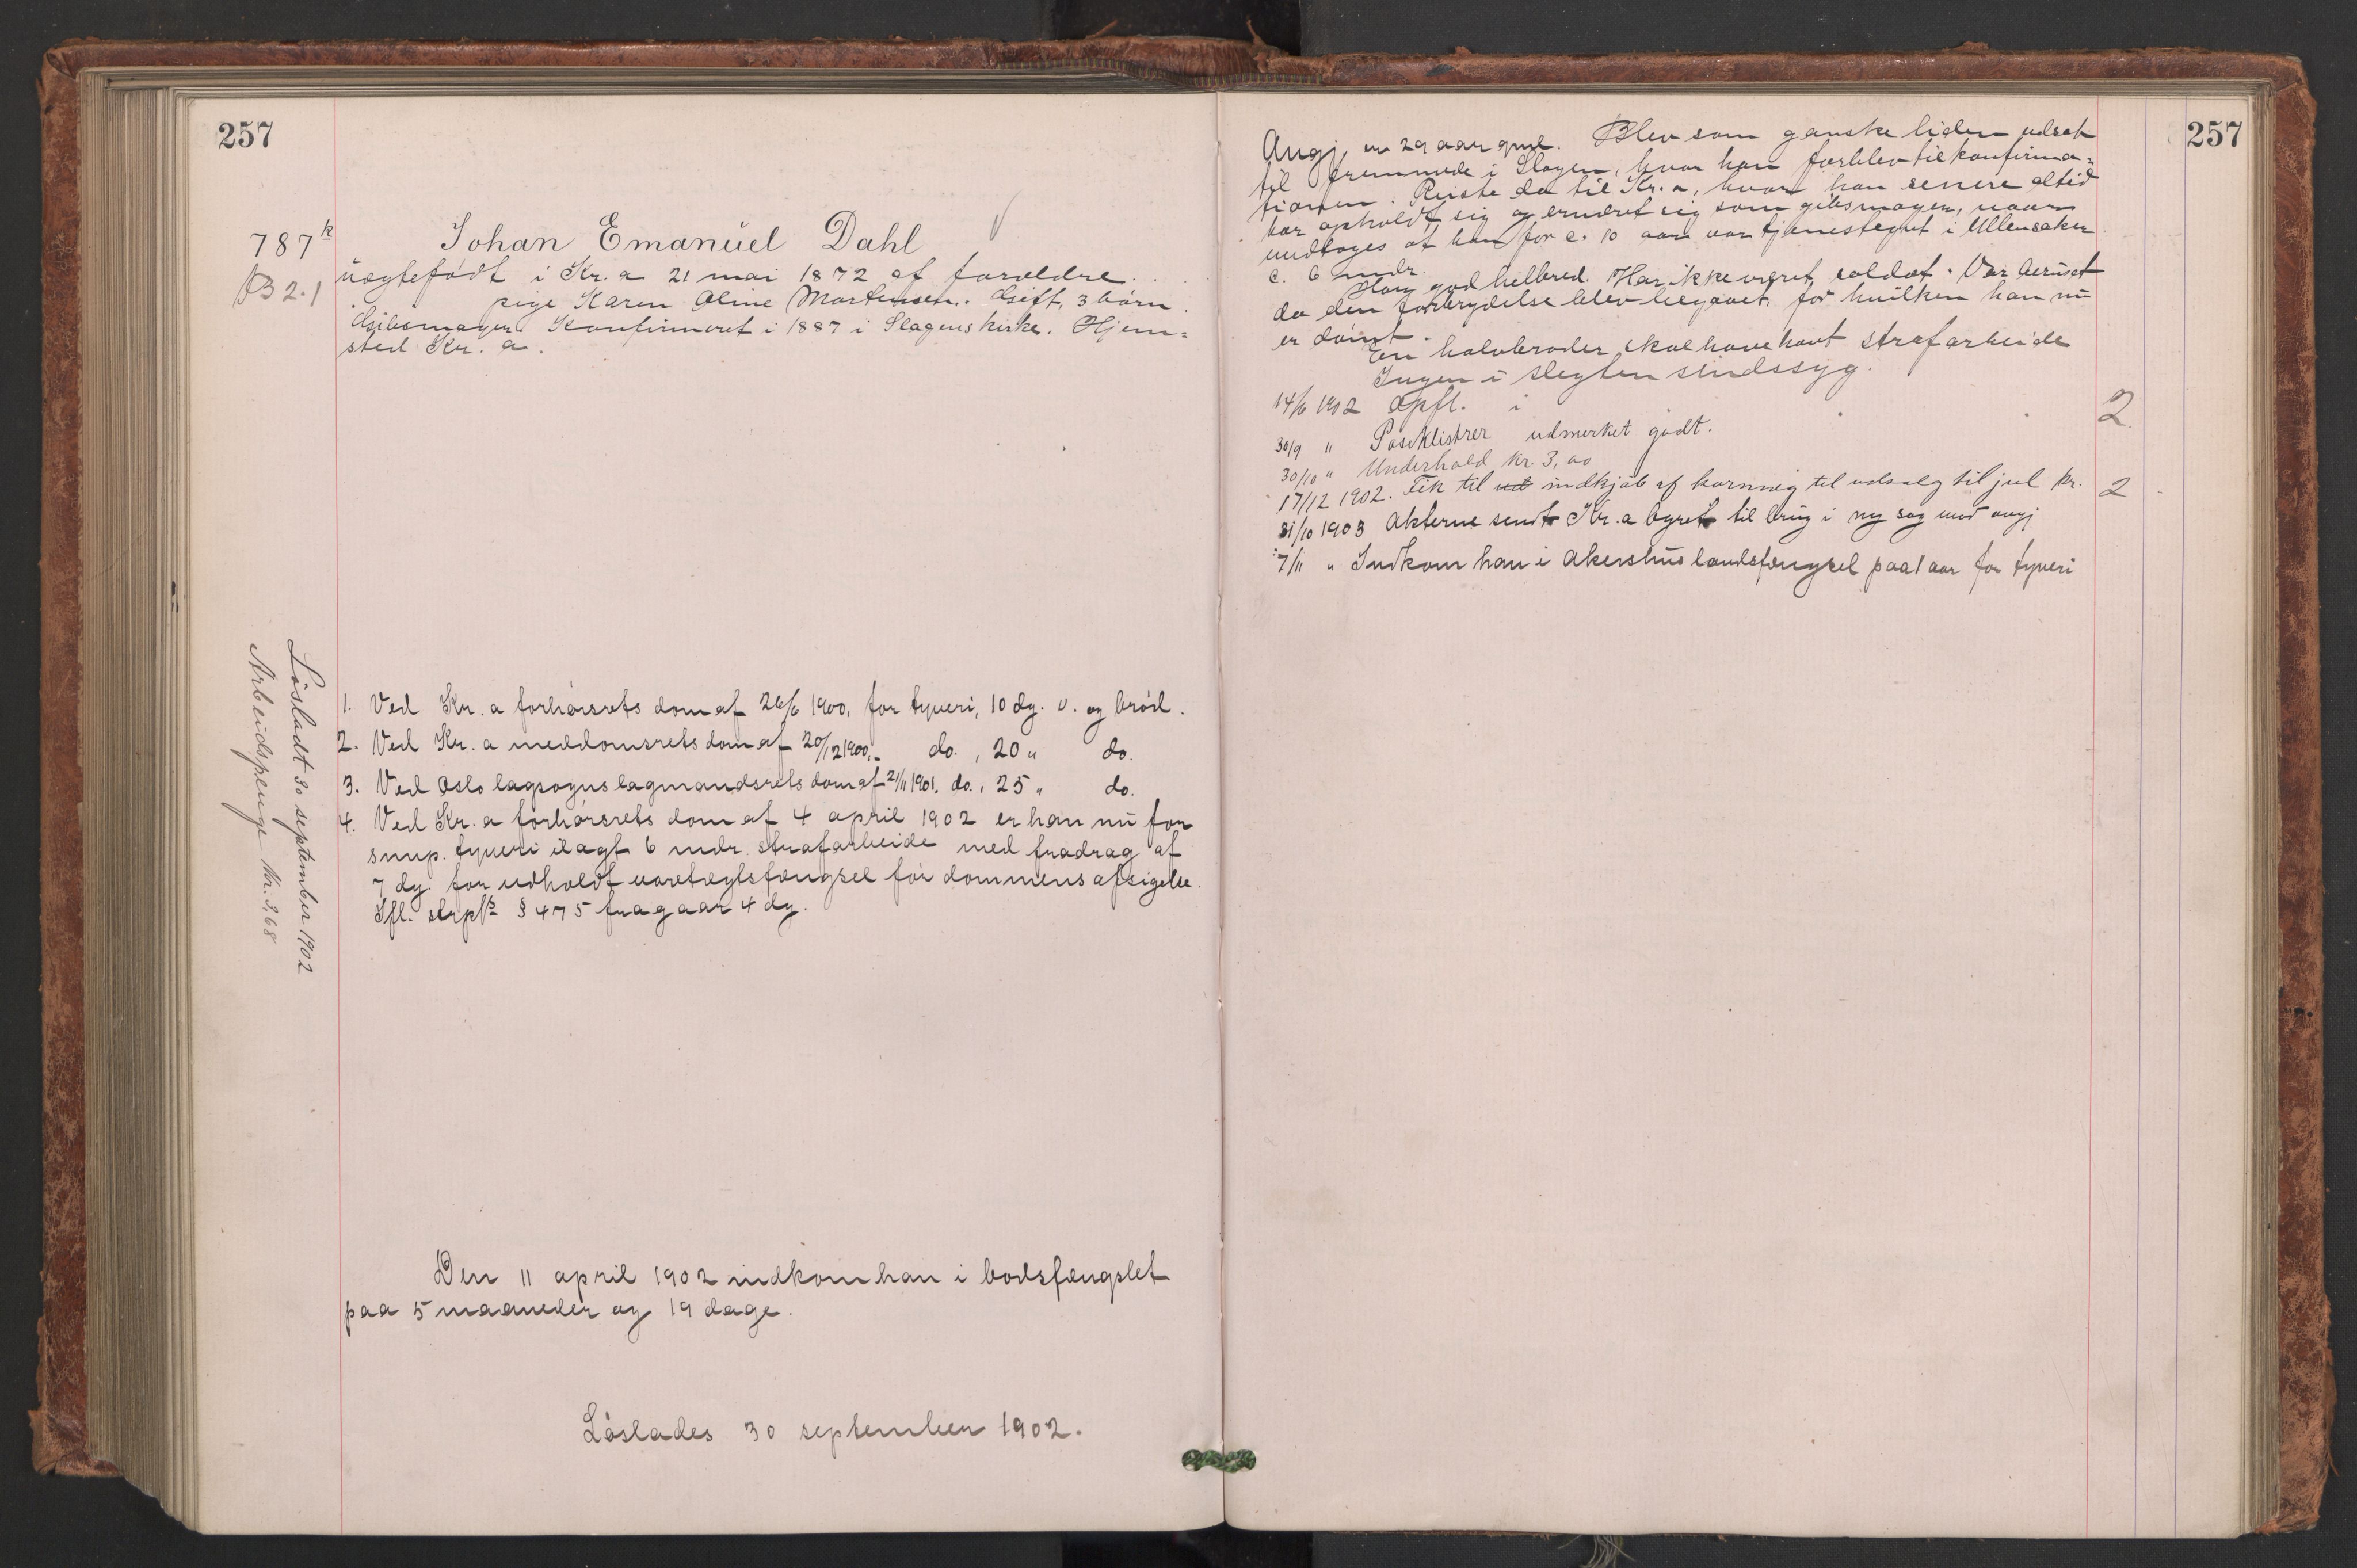 257
787 k
B 2.1
Johan Emanuel Dahl
uægtefødt i Kr.a 21 mai 1872 af forældre
pige Karen Oline Martensen. Gift, 3 børn.
Gibsmager. Konfirmeret i 1887 i Slagens kirke. Hjem=
sted Kr.a.
Løsladt 30 september 1902
Arbeidspenge kr. 3,68
1. Ved Kr.a forhørsrets dom af 26/6 1900, for tyveri, 10 dg. v. og brød.
2. Ved Kr.a meddomsrets dom af 20/12 1900, do., 20 " do.
3. Ved Oslo lagsogns lagmandsrets dom af 21/11 1901. do., 25 " do.
4. Ved Kr.a forhørsrets dom af 4 april 1902 er han nu for
simp. tyveri ilagt 6 mdr. strafarbeide med fradrag af
7 dg. for udholdt varetægtsfængsel før dommens afsigelse.
Ifl. strpl. § 475 fragaar 4 dg.
Den 11 april 1902 indkom han i bodsfængslet
paa 5 maaneder og 19 dage.
Løslades 30 september 1902.
257
Angj. er 29 aar gml. Blev som ganske liden udsat
til fremmede i Slagen, hvor han forblev til konfirma=
tionen. Reiste da til Kr.a, hvor han senere altid
har opholdt sig og ernæret sig som gibsmager, naar
undtages at han for c. 10 aar var tjenestegut i Ullensaker
c. 6 mdr.
Har god helbred. Har ikke været soldat. Var beruset
da den forbrydelse blev begaaet, for hvilken han nu
er dømt.
En halvbroder skal have havt strafarbeide
Ingen i slegten sindssyg.
14/6 1902 Opfl. i 2
30/9 " Poseklistrer udmerket godt.
30/10 " Underhold kr 3,00
17/12 1902. Fik til ud indkjøb af kornneg til udsalg til jul kr. 2
31/10 1903 Akterne sendt Kr.a byret til brug i ny sag mod angj
7/11 " Indkom han i Akershus landsfængsel paa 1 aar for tyveri